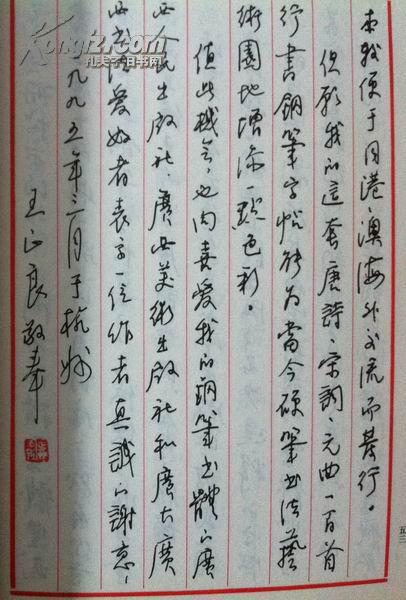 亦我便于同港、澳、海外交流而基行。
但願我的這套唐詩、宋詞、元曲一百首
行書鋼筆字帖能为當今硬筆书法藝
術園地增添一點色彩。
值此機会，也向喜爱我的鋼筆书體的廣
西人民出版社、廣西美術出版社和廣大廣
西书法爱好者表示一位作者真誠的謝意！
一九九五年三月于杭州
王正良敬奉
五三
孔夫子旧书网